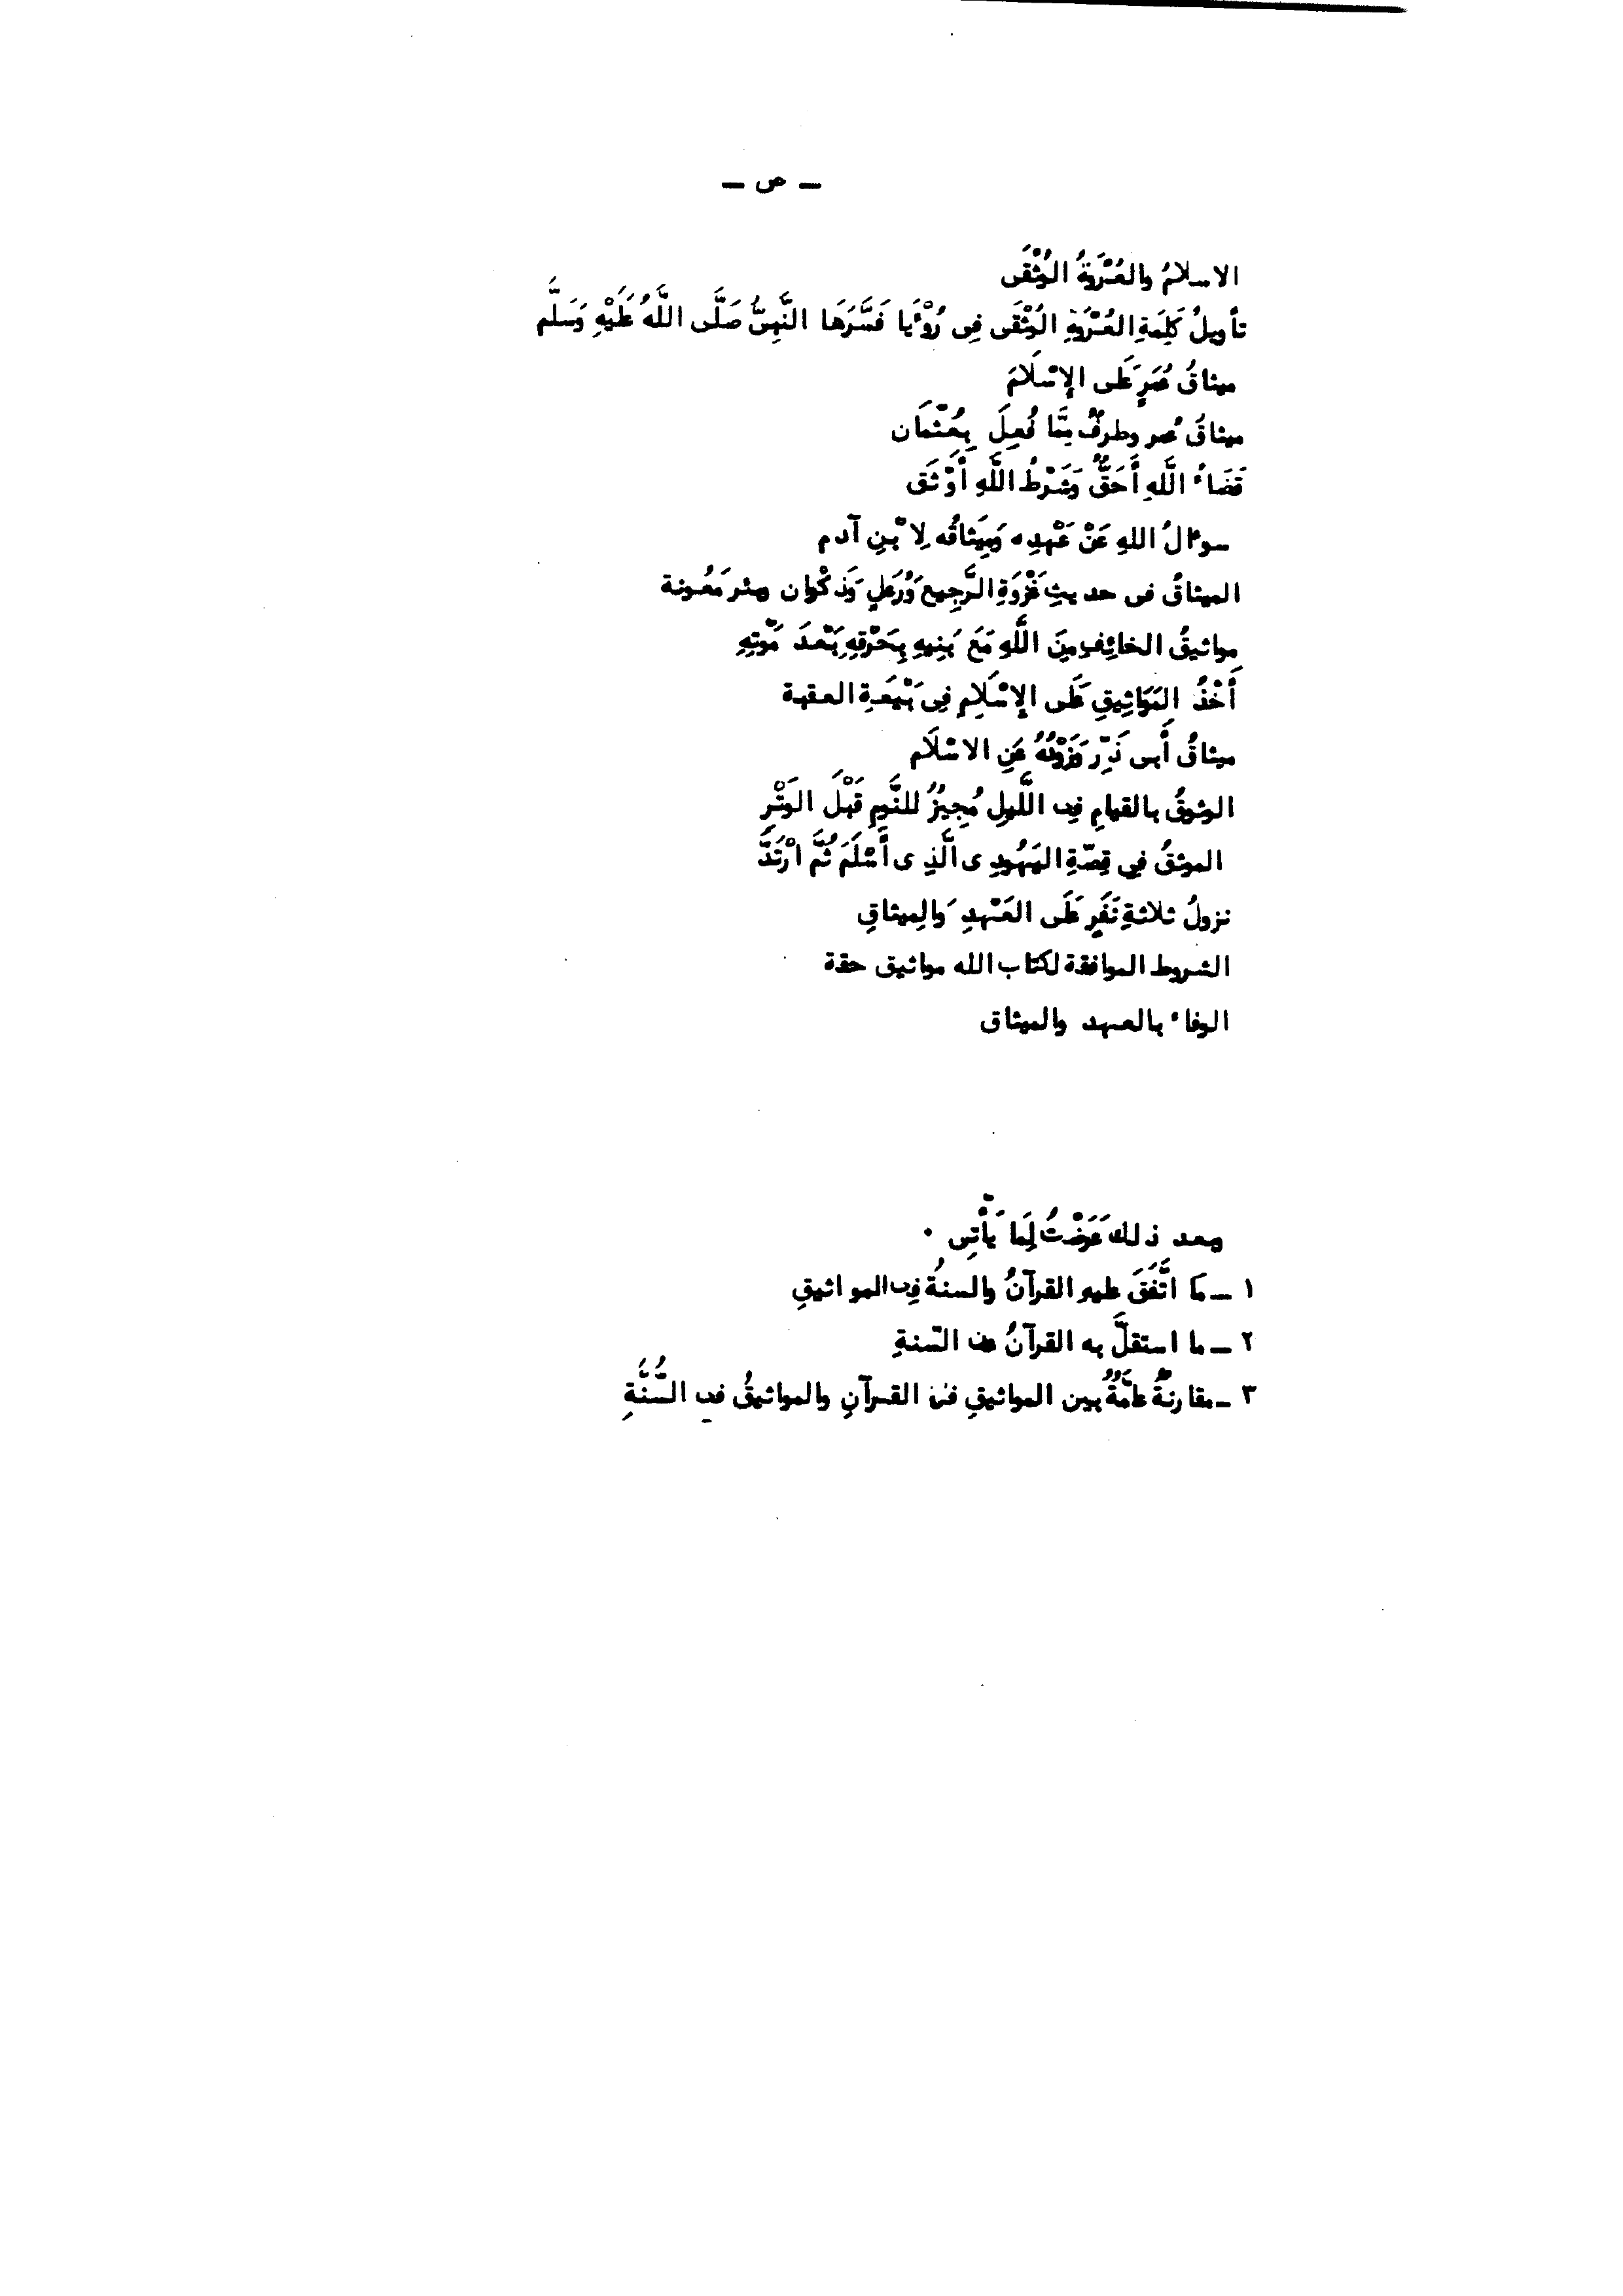 — ص —
الاسلامُ والعُرْوَةُ الوُثْقَى
تأويلُ كَلِمَةِ العُرْوَةِ الوُثْقَى فِى رُوْءَيا فَسَّرَهَا النَّبِىُّ صَلَّى اللَّهُ عَلَيْهِ وَسَلَّم
ميثاقُ عُمَرٍ عَلَى الإِسْلَامَ
ميثاقُ عُمر وطرفٌ مِمَّا فُعِلَ بِعُثْمَان
قَضَاءُ اللَّهِ أَحَقُّ وَشَرْطُ اللَّهِ أَوْثَق
سوءالُ اللهِ عَنْ عَهْدِه وَمِيَثاقُه لِابْنِ آدم
الميثاقُ فى حديثِ غَزْوَةِ الرَّجِيعِ وَرُعَلٍ وَذَكْوان وبئر مَعُونة
مواثيقُ الخائِفِ مِنَ اللَّهِ مَعَ بَنِيهِ بِحَرْقِهِ بَعْدَ مَوْتِهِ
أَخْذُ المَوَاثِيقِ عَلَى الإِسْلَامِ فِى بَيْعَةِ العقبة
ميثاقُ أَبى ذَرٍّ وَذَوْدُهُ عَنِ الاسْلَام
الوثوقُ بالقيامِ فِى اللَّيلِ مُجِيزُ للنَّومِ قَبْلَ الوَتْرِ
الموثقُ فِي قِصّةِ اليَهُودِى الَّذِى أَسْلَمَ ثُمَّ ارْتَدَّ
نزولُ ثلاثةِ نَفَرٍ عَلَى العَهْدِ وَالمِيثاقِ
الشروط الموافقة لكتاب الله مواثيق حقة
الوفاء بالعهد والميثاق
وبعد ذلك عَرَضْتُ لِمَا يَأْتِى ٠
١ — مَا اتَّفَقَ عليه القرآنُ والسنةُ فِى المواثيقِ
٢ — ما استقلَّ به القرآنُ عن السّنةِ
٣ — مقارنةٌ عامَّةٌ بين المواثيقِ فى القرآنِ والمواثيقُ فى السُّنَّةِ